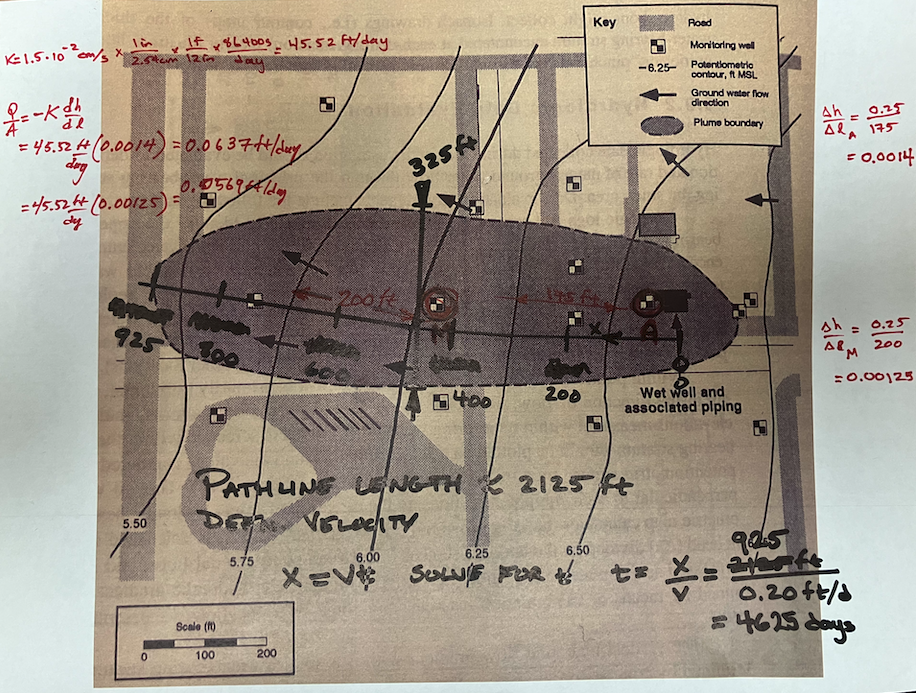 K=1.5·10⁻² cm/s × 1in/2.54cm × 1f/12in × 86400s/day = 45.52 ft/day
Q/A = -K dh/dl
= 45.52 ft/day (0.0014) = 0.0637 ft/day
= 45.52 ft/dy (0.00125) = 0.0569 ft/day
Key
Road
Monitoring well
-6.25- Potentiometric contour, ft MSL
Ground water flow direction
Plume boundary
Δh/Δl A = 0.25/175
= 0.0014
Δh/Δl M = 0.25/200
= 0.00125
325 ft
200 ft
175 ft
M
A
X
0
925
800
600
400
200
Wet well and
associated piping
PATHLINE LENGTH ≈ 2125 ft
VELOCITY
5.50
5.75
6.00
6.25
6.50
X = Vt SOLVE FOR t t = X/V = 925 ft/0.20 ft/d
= 4625 days
Scale (ft)
0 100 200